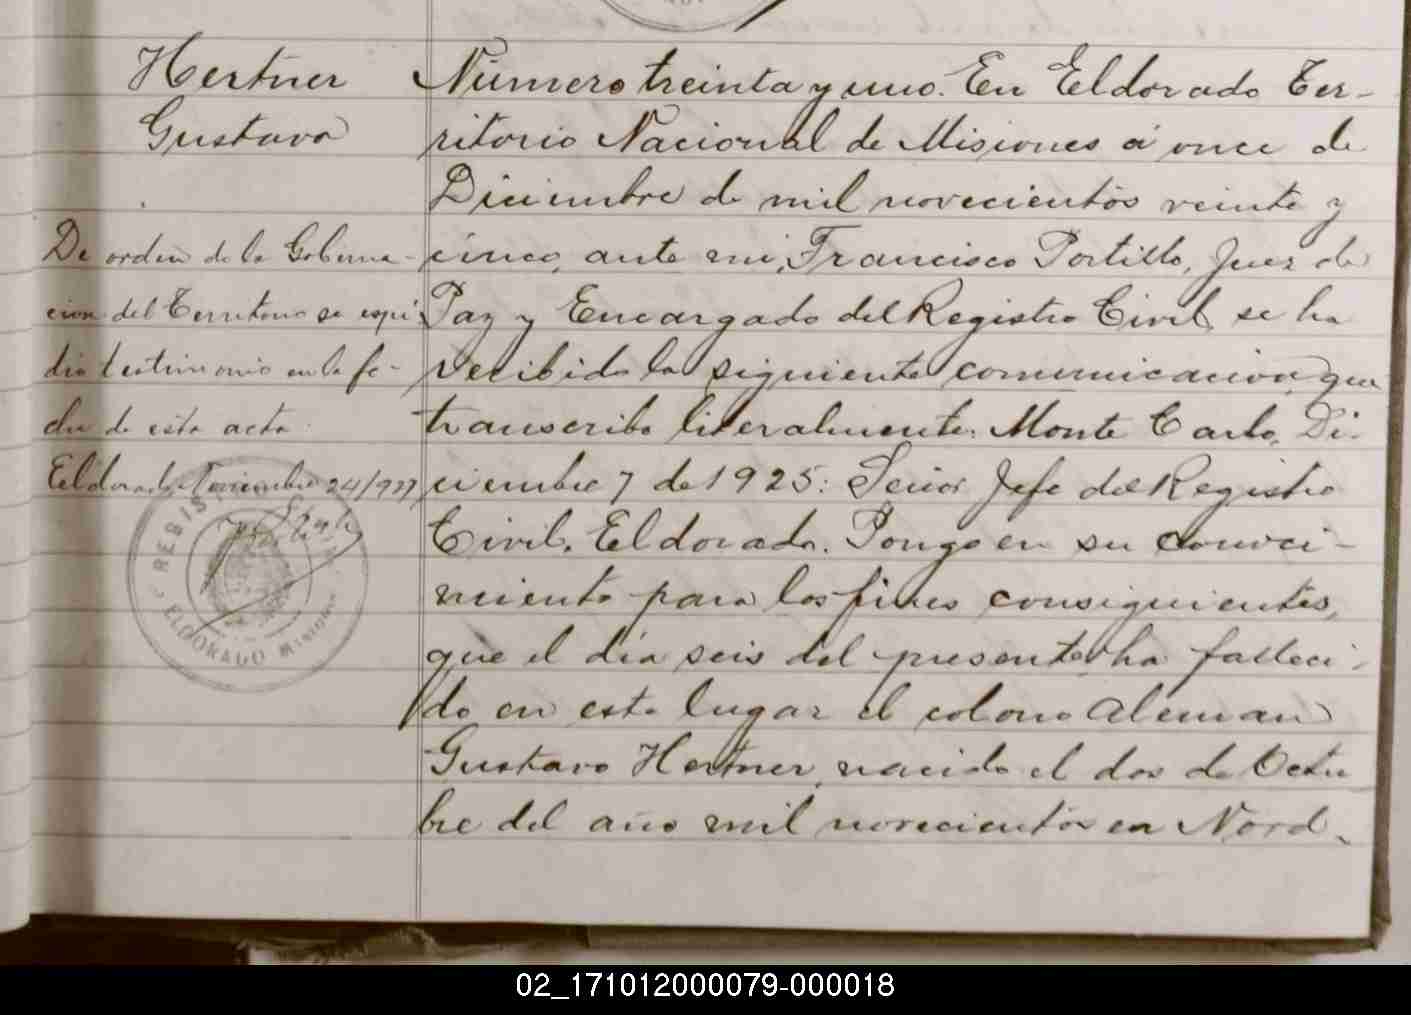 Hertner
Gustavo
De orden de la Goberna-
cion del Territorio se expi
dió testimonio en la fe-
cha de esta acta.
Eldorado Noviembre 24/927
REGISTRO CIVIL
ELDORADO Misiones
Número treinta y uno. En Eldorado Ter-
ritorio Nacional de Misiones á once de
Diciembre de mil novecientos veinte y
cinco, ante mi, Francisco Portillo, Juez de
Paz y Encargado del Registro Civil, se ha
recibido la siguiente comunicacion, que
transcribo literalmente: Monte Carlo, Di-
ciembre 7 de 1925: Señor Jefe del Registro
Civil. Eldorado. Pongo en su conoci-
miento para los fines consiguientes,
que el día seis del presente, ha falleci-
do en este lugar el colono aleman
Gustavo Hertner, nacido el dos de Octu
bre del año mil novecientos en Nord-
02_171012000079-000018